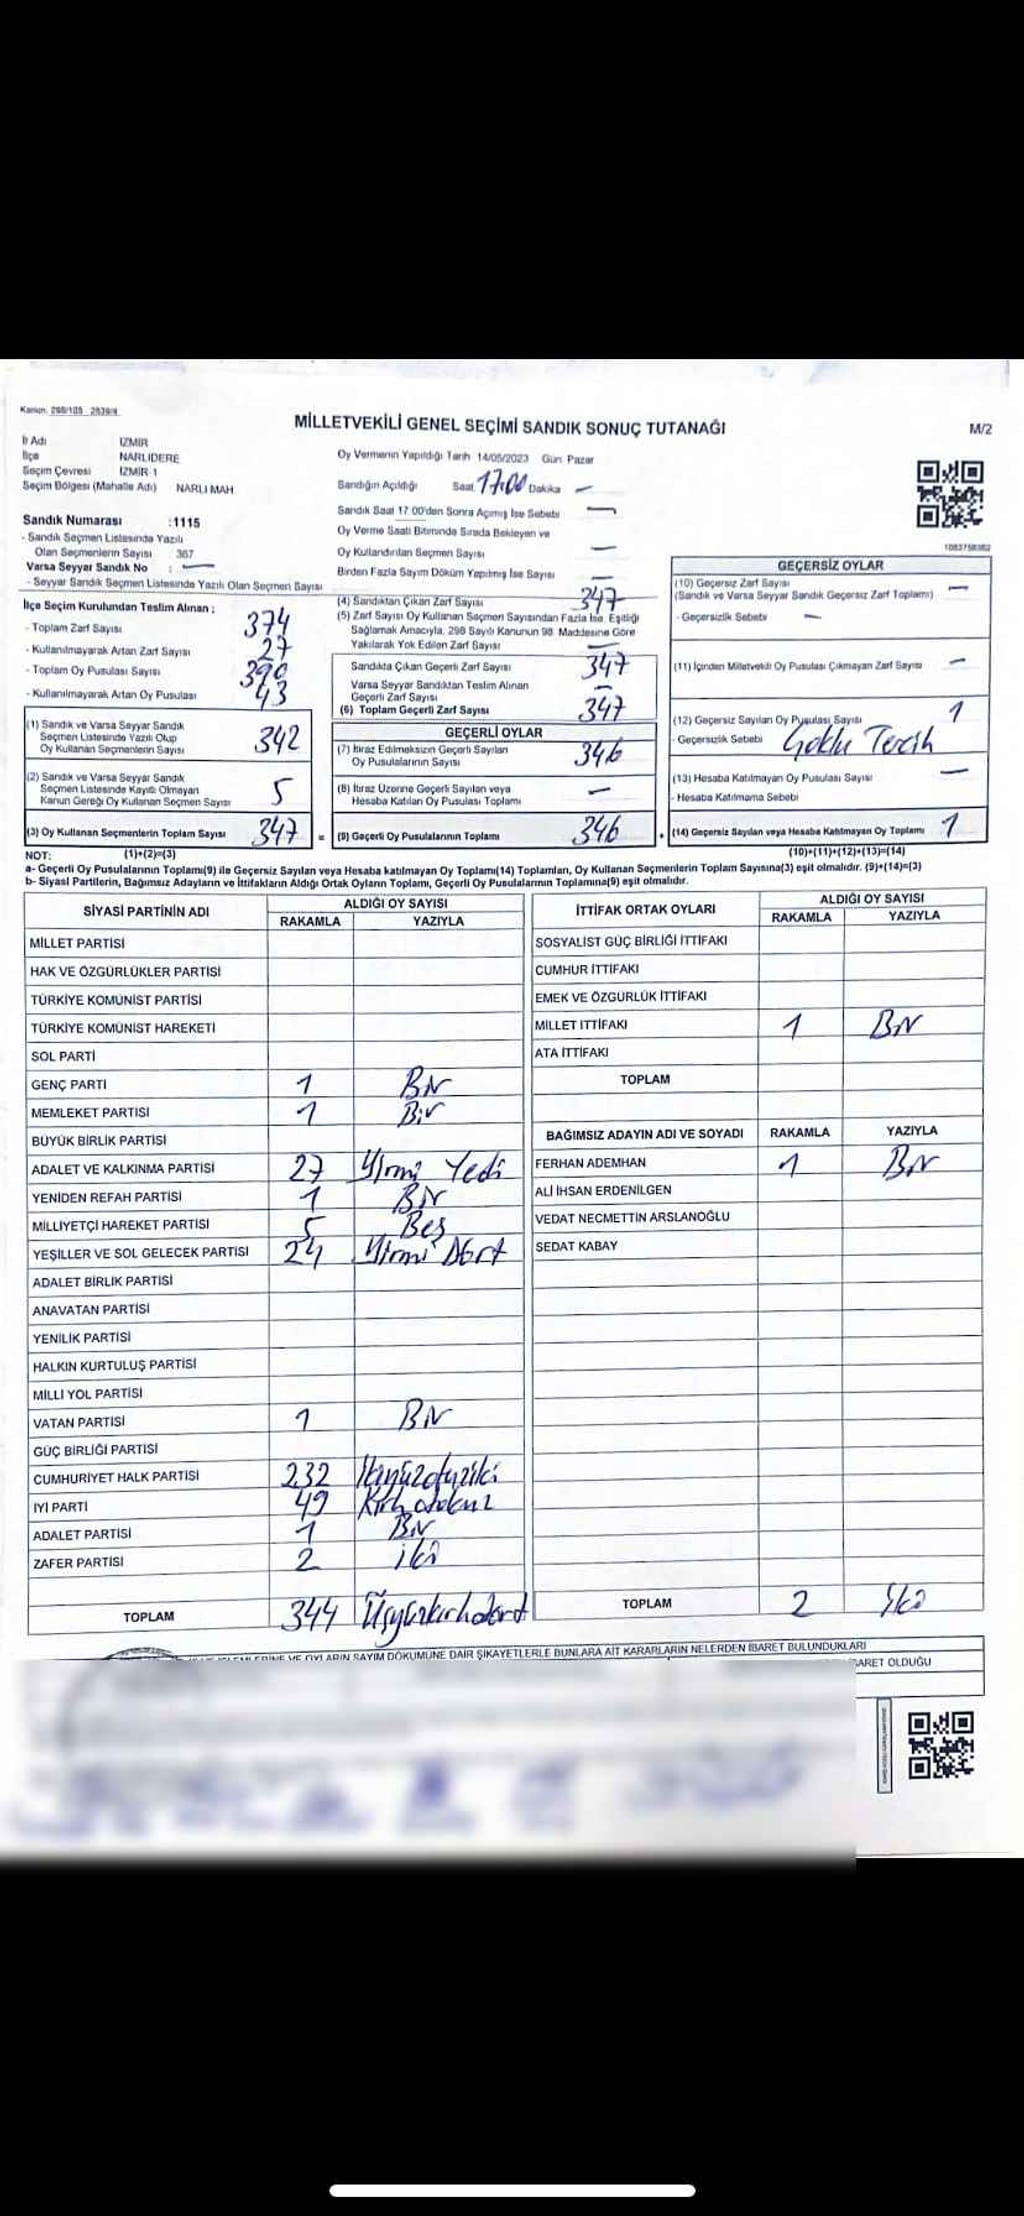 Kanun. 298/105 2839/4
MİLLETVEKİLİ GENEL SEÇİMİ SANDIK SONUÇ TUTANAĞI
M/2
İl Adı İZMİR
İlçe NARLIDERE
Seçim Çevresi İZMİR-1
Seçim Bölgesi (Mahalle Adı) NARLI MAH
Sandık Numarası :1115
- Sandık Seçmen Listesinde Yazılı
Olan Seçmenlerin Sayısı 367
Varsa Seyyar Sandık No : —
- Seyyar Sandık Seçmen Listesinde Yazılı Olan Seçmen Sayısı
Oy Vermenin Yapıldığı Tarih 14/05/2023 Gün Pazar
Sandığın Açıldığı Saat 17:00 Dakika —
Sandık Saat 17 00'den Sonra Açımış İse Sebebi —
Oy Verme Saati Bitiminde Sırada Bekleyen ve
Oy Kullandırılan Seçmen Sayısı —
Birden Fazla Sayım Döküm Yapılmış İse Sayısı —
İlçe Seçim Kurulundan Teslim Alınan ;
- Toplam Zarf Sayısı 374
- Kullanılmayarak Artan Zarf Sayısı 27
- Toplam Oy Pusulası Sayısı 390
- Kullanılmayarak Artan Oy Pusulası 43
(1) Sandık ve Varsa Seyyar Sandık
Seçmen Listesinde Yazılı Olup
Oy Kullanan Seçmenlerin Sayısı 342
(2) Sandık ve Varsa Seyyar Sandık
Seçmen Listesinde Kayıtlı Olmayan
Kanun Gereği Oy Kullanan Seçmen Sayısı 5
(3) Oy Kullanan Seçmenlerin Toplam Sayısı 347 =
(4) Sandıktan Çıkan Zarf Sayısı 347
(5) Zarf Sayısı Oy Kullanan Seçmen Sayısından Fazla İse, Eşitliği
Sağlamak Amacıyla, 298 Sayılı Kanunun 98. Maddesine Göre
Yakılarak Yok Edilen Zarf Sayısı —
Sandıkta Çıkan Geçerli Zarf Sayısı 347
Varsa Seyyar Sandıktan Teslim Alınan
Geçerli Zarf Sayısı —
(6) Toplam Geçerli Zarf Sayısı 347
GEÇERLİ OYLAR
(7) İtiraz Edilmeksizin Geçerli Sayılan
Oy Pusulalarının Sayısı 346
(8) İtiraz Üzerine Geçerli Sayılan veya
Hesaba Katılan Oy Pusulası Toplamı —
(9) Geçerli Oy Pusulalarının Toplamı 346 +
GEÇERSİZ OYLAR
(10) Geçersiz Zarf Sayısı —
(Sandık ve Varsa Seyyar Sandık Geçersiz Zarf Toplamı)
- Geçersizlik Sebebi —
(11) İçinden Milletvekili Oy Pusulası Çıkmayan Zarf Sayısı —
(12) Geçersiz Sayılan Oy Pusulası Sayısı 1
- Geçersizlik Sebebi Çoklu Tercih
(13) Hesaba Katılmayan Oy Pusulası Sayısı —
- Hesaba Katılmama Sebebi
(14) Geçersiz Sayılan veya Hesaba Katılmayan Oy Toplamı 1
NOT: (1)+(2)=(3) (10)+(11)+(12)+(13)=(14)
a- Geçerli Oy Pusulalarının Toplamı(9) ile Geçersiz Sayılan veya Hesaba katılmayan Oy Toplamı(14) Toplamları, Oy Kullanan Seçmenlerin Toplam Sayısına(3) eşit olmalıdır. (9)+(14)=(3)
b- Siyasi Partilerin, Bağımsız Adayların ve İttifakların Aldığı Ortak Oyların Toplamı, Geçerli Oy Pusulalarının Toplamına(9) eşit olmalıdır.
SİYASİ PARTİNİN ADI ALDIĞI OY SAYISI
RAKAMLA YAZIYLA
MİLLET PARTİSİ
HAK VE ÖZGÜRLÜKLER PARTİSİ
TÜRKİYE KOMÜNİST PARTİSİ
TÜRKİYE KOMÜNİST HAREKETİ
SOL PARTİ
GENÇ PARTİ 1 Bir
MEMLEKET PARTİSİ 1 Bir
BÜYÜK BİRLİK PARTİSİ
ADALET VE KALKINMA PARTİSİ 27 Yirmi Yedi
YENİDEN REFAH PARTİSİ 1 Bir
MİLLİYETÇİ HAREKET PARTİSİ 5 Beş
YEŞİLLER VE SOL GELECEK PARTİSİ 24 Yirmi Dört
ADALET BİRLİK PARTİSİ
ANAVATAN PARTİSİ
YENİLİK PARTİSİ
HALKIN KURTULUŞ PARTİSİ
MİLLİ YOL PARTİSİ
VATAN PARTİSİ 1 Bir
GÜÇ BİRLİĞİ PARTİSİ
CUMHURİYET HALK PARTİSİ 232 İkiyüzotuziki
İYİ PARTİ 49 Kırkdokuz
ADALET PARTİSİ 1 Bir
ZAFER PARTİSİ 2 iki
TOPLAM 344 Üçyüzkırkdört
İTTİFAK ORTAK OYLARI ALDIĞI OY SAYISI
RAKAMLA YAZIYLA
SOSYALİST GÜÇ BİRLİĞİ İTTİFAKI
CUMHUR İTTİFAKI
EMEK VE ÖZGÜRLÜK İTTİFAKI
MİLLET İTTİFAKI 1 Bir
ATA İTTİFAKI
TOPLAM
BAĞIMSIZ ADAYIN ADI VE SOYADI RAKAMLA YAZIYLA
FERHAN ADEMHAN 1 Bir
ALİ İHSAN ERDENİLGEN
VEDAT NECMETTİN ARSLANOĞLU
SEDAT KABAY
TOPLAM 2 İki
VE OYLARIN SAYIM DÖKÜMÜNE DAİR ŞİKAYETLERLE BUNLARA AİT KARARLARIN NELERDEN İBARET BULUNDUKLARI
OLDUĞU